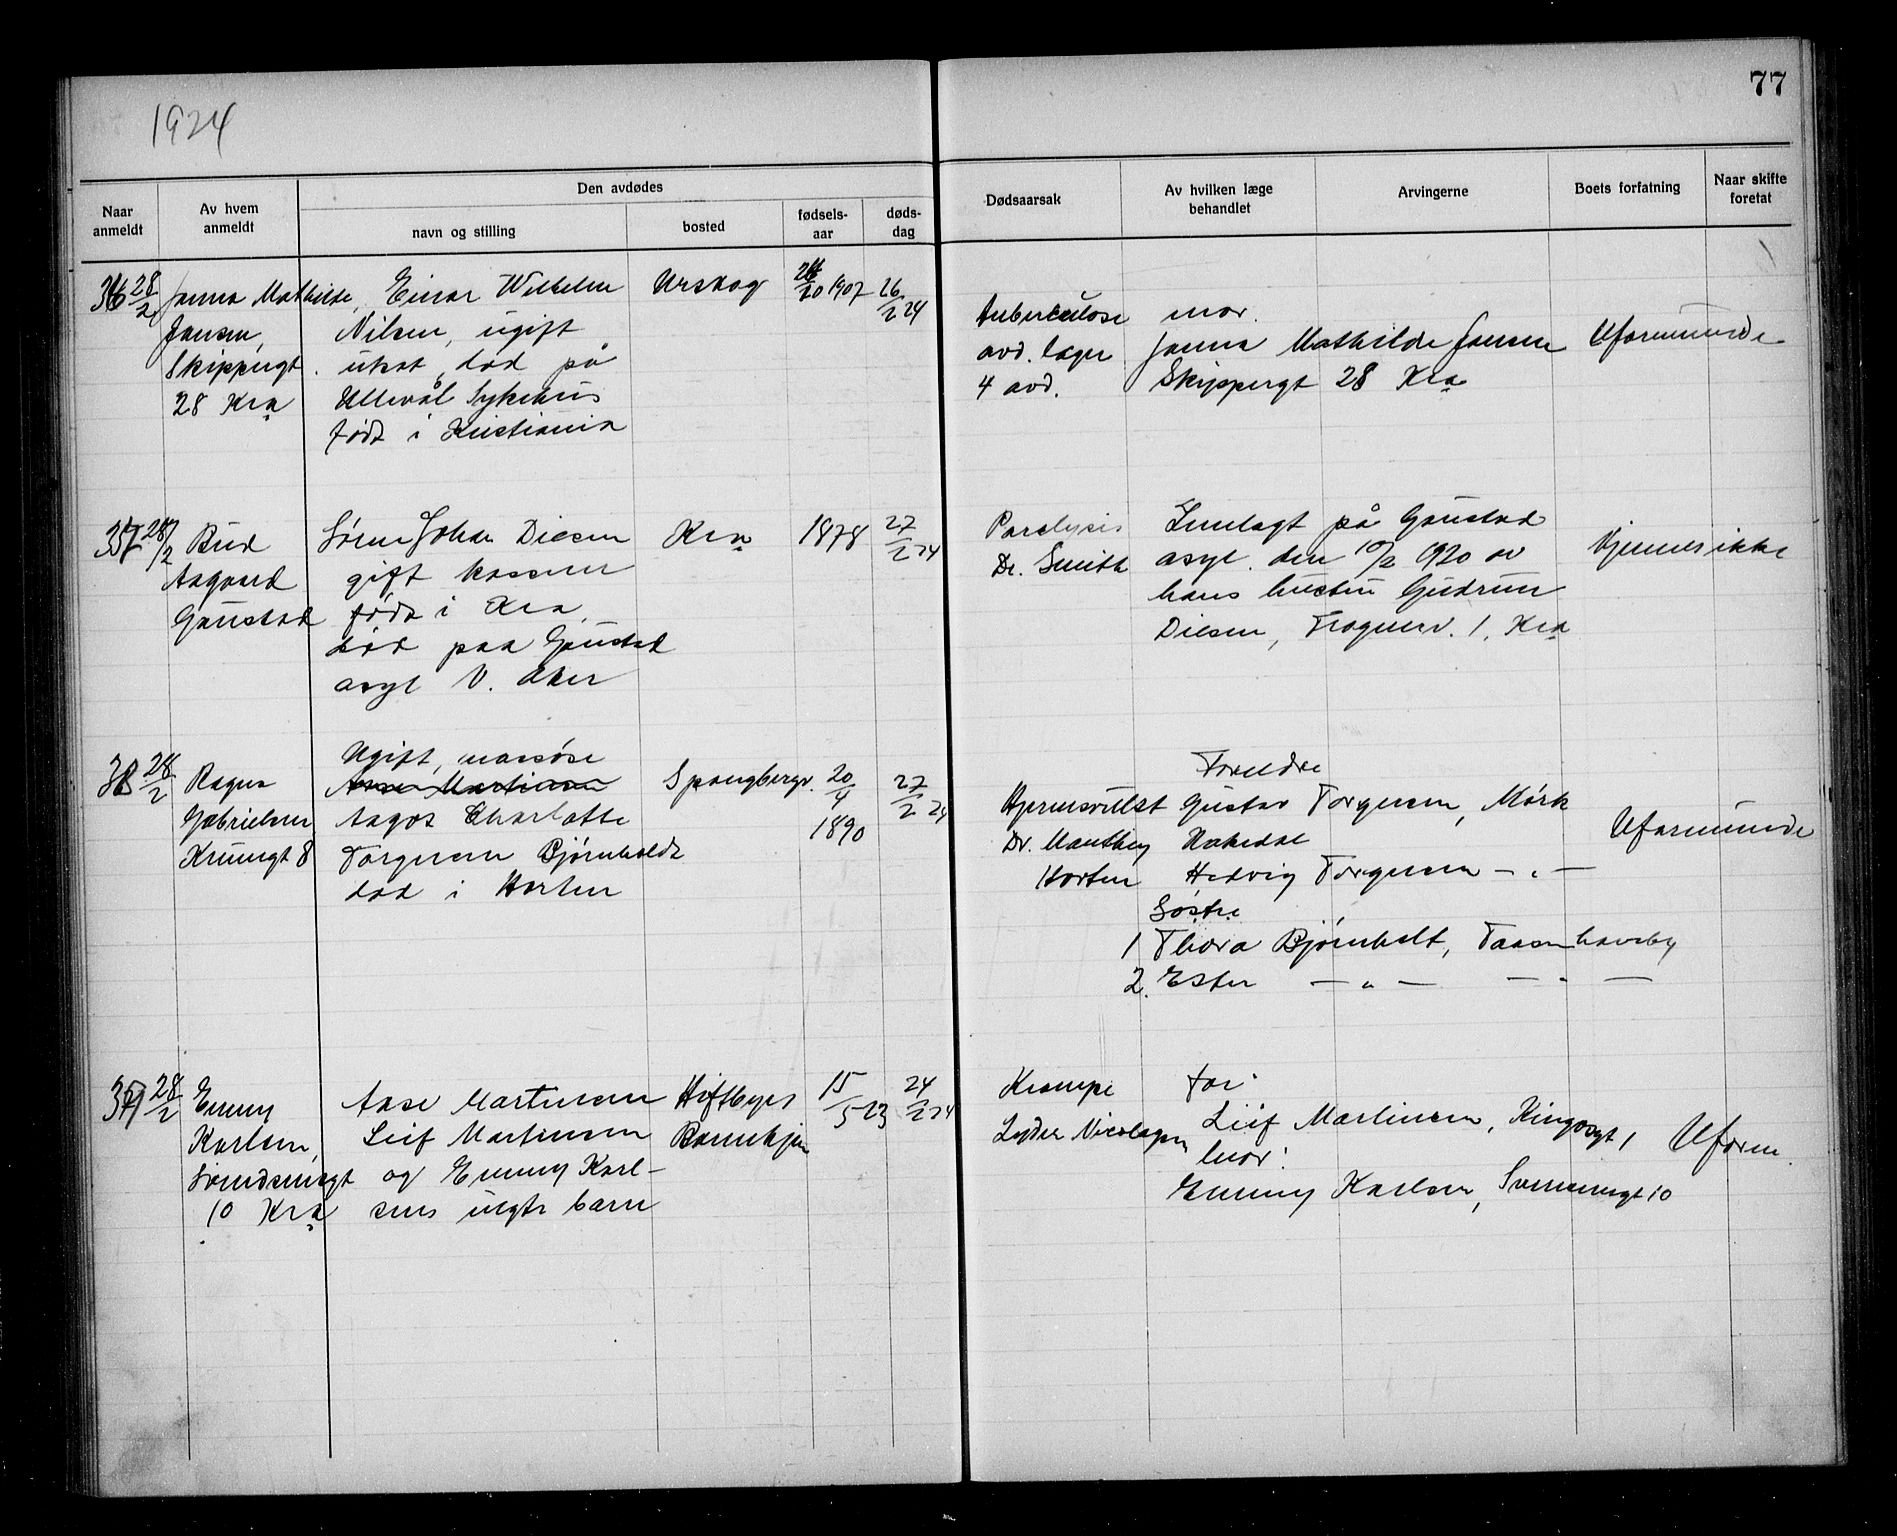 1924
77
Naar anmeldt
Av hvem anmeldt
Den avdødes
navn og stilling
bosted
fødsels-aar
døds-dag
Dødsaarsak
Av hvilken læge behandlet
Arvingerne
Boets forfatning
Naar skifte foretat
36 28/2 Janna Mathilde, Einar Wilhelm Urskog 1907 26/2 24
Jansen, Nilsen, ugift
Skippergt. død på
28 Kra Ullevål Sykehus
født i Kristiania
Tuberculose mor.
avd. læger Janna Mathilde Jansen Uformuende
4 avd. Skippergt 28 Kra
37 28/2 Bud Søren Johan Diesen Kra 1878 27/2 24
Aagaard gift
Gaustad født i Kra
død paa Gaustad
asyl V. Aker
Paralysis Innlagt på Gaustad
Dr. Smith asyl. den 10/2 1920 av kjennes ikke
hans hustru Gudrun
Diesen, Frognerv. 1. Kra
Ugift, massøse
38 28/2 Ragna Aase Martinsen Spangbergv. 20/4 27/2 24
Gabrielsen Aagot Charlotte 1890
Krumgt 8 Torgersen Bjørnholdt
død i Horten
Foreldre
Gustav Torgersen, Mörk
Dr. Manthey Hakedal Uformuende
Horten Hedvig Torgersen — " —
Søstre
1 Thora Bjørnholt, Taasen haveby
2. Ester — " — — " —
39 28/2 Emmy Aase Martinsen Heftyes 15/5 23 24/2 24
Karlsen, Leif Martinsen Barnehjem
og Emmy Karl-
10 Kra sens uegte barn
Krampe far:
Leif Martinsen, Kingosgt 1 Uform.
Nicolaysen mor:
Emmy Karlsen, Svensensgt 10